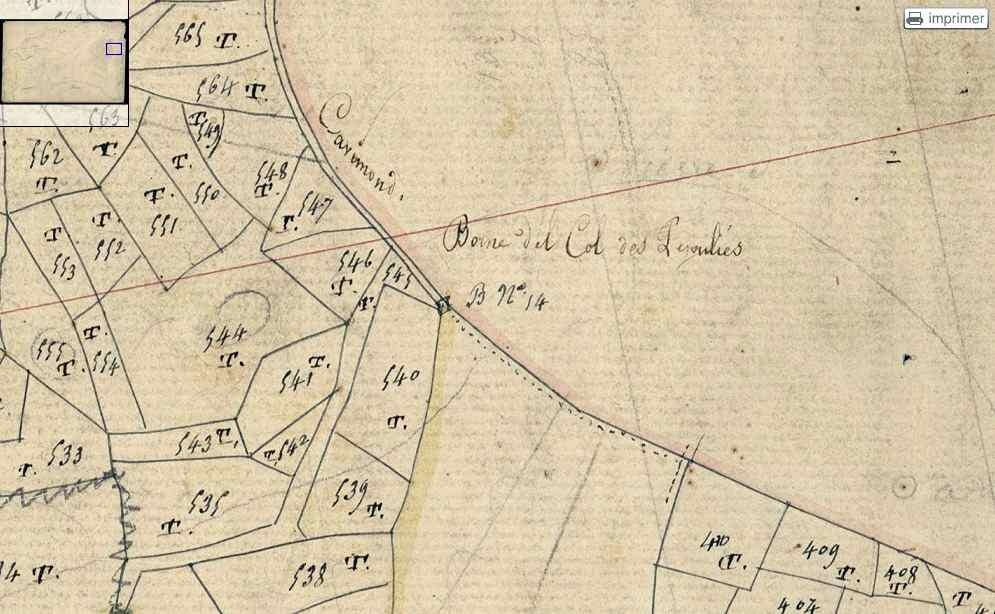 imprimer
565 T.
564 T.
563
T.
T. 549
562
T.
T.
548
T.
T.
550
547
T.
T.
551
T.
552
T.
553
Borne del Col des
546
T.
545
T.
B N° 14
544
T.
T.
554
555
T.
T.
541
540
T.
543 T.
T. 542
533
T.
539
T.
535
T.
410
T.
409
T.
408
T.
T.
538
T.
4 T.
407